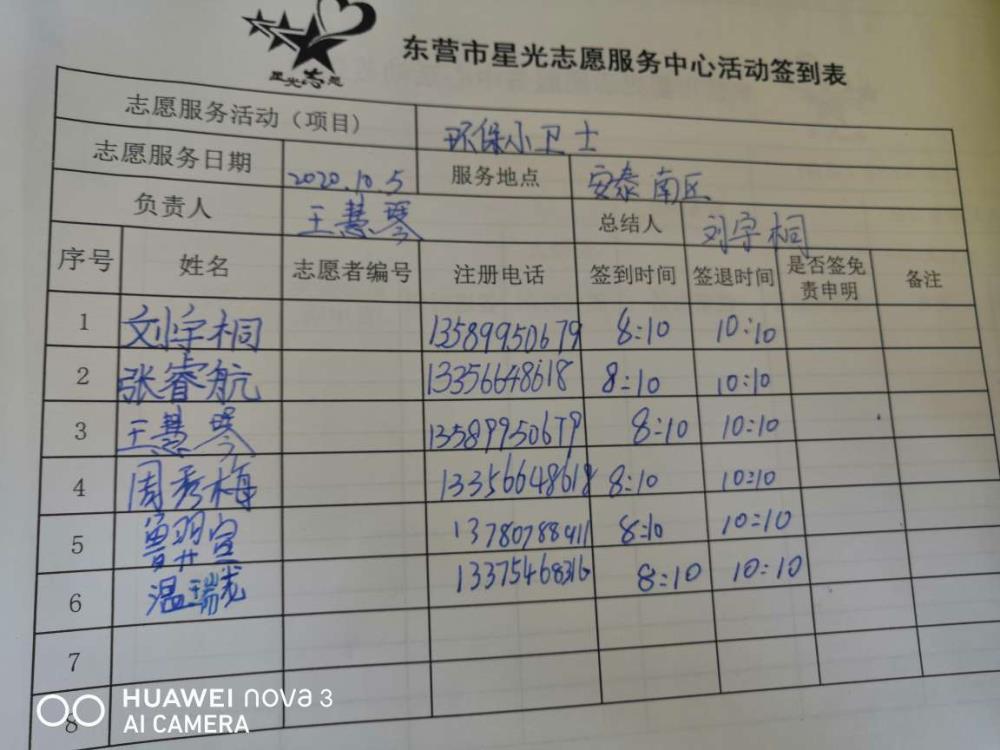 星光志愿
东营市星光志愿服务中心活动签到表
志愿服务活动（项目） 环保小卫士
志愿服务日期 2020.10.5 服务地点 安泰南区
负责人 王慧琴 总结人 刘宇桐
序号 姓名 志愿者编号 注册电话 签到时间 签退时间 是否签免责申明 备注
1 刘宇桐 13589950679 8:10 10:10
2 张睿航 13356648618 8:10 10:10
3 王慧琴 13589950679 8:10 10:10
4 周秀梅 13356648618 8:10 10:10
5 8:10 10:10
6 温瑞龙 13375468316 8:10 10:10
7
8
HUAWEI nova 3
AI CAMERA